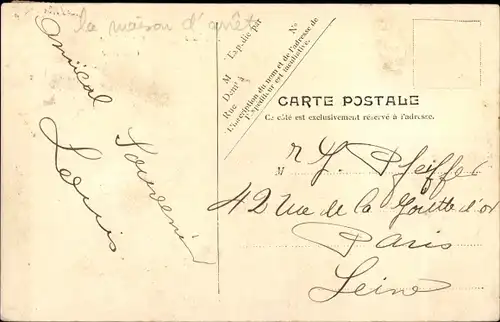 la maison d'arrêt
Amical
Souvenir
Louis
Expédié par
M
Demt à
Rue
N°
L'inscription du nom et de l'adresse de
l'Expéditeur est facultative.
CARTE POSTALE
Ce côté est exclusivement réservé à l'adresse.
M r G. Pfeiffer
42 Rue de la Goutte d'or
Paris
Seine